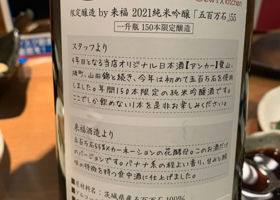 限定醸造 by 来福 2021純米吟醸「五百万石」55
一升瓶 150本限定醸造
スタッフより
4年目となる当店オリジナル日本酒【マンカー】愛山、
雄町、山田錦と続き、今年は初めて五百万石を使用
しました。年間150本限定の純米吟醸酒です。
ここでしか飲めない1本を是非お楽しみください。
来福酒造より
五百万石55%×カーネーションの花酵母。このお酒だけ
のバージョンです。バナナ系の程よい香り、甘みと酸
味の特徴を持つ食中酒に仕上げました。
■原材料名：茨城県産五百万石 100%